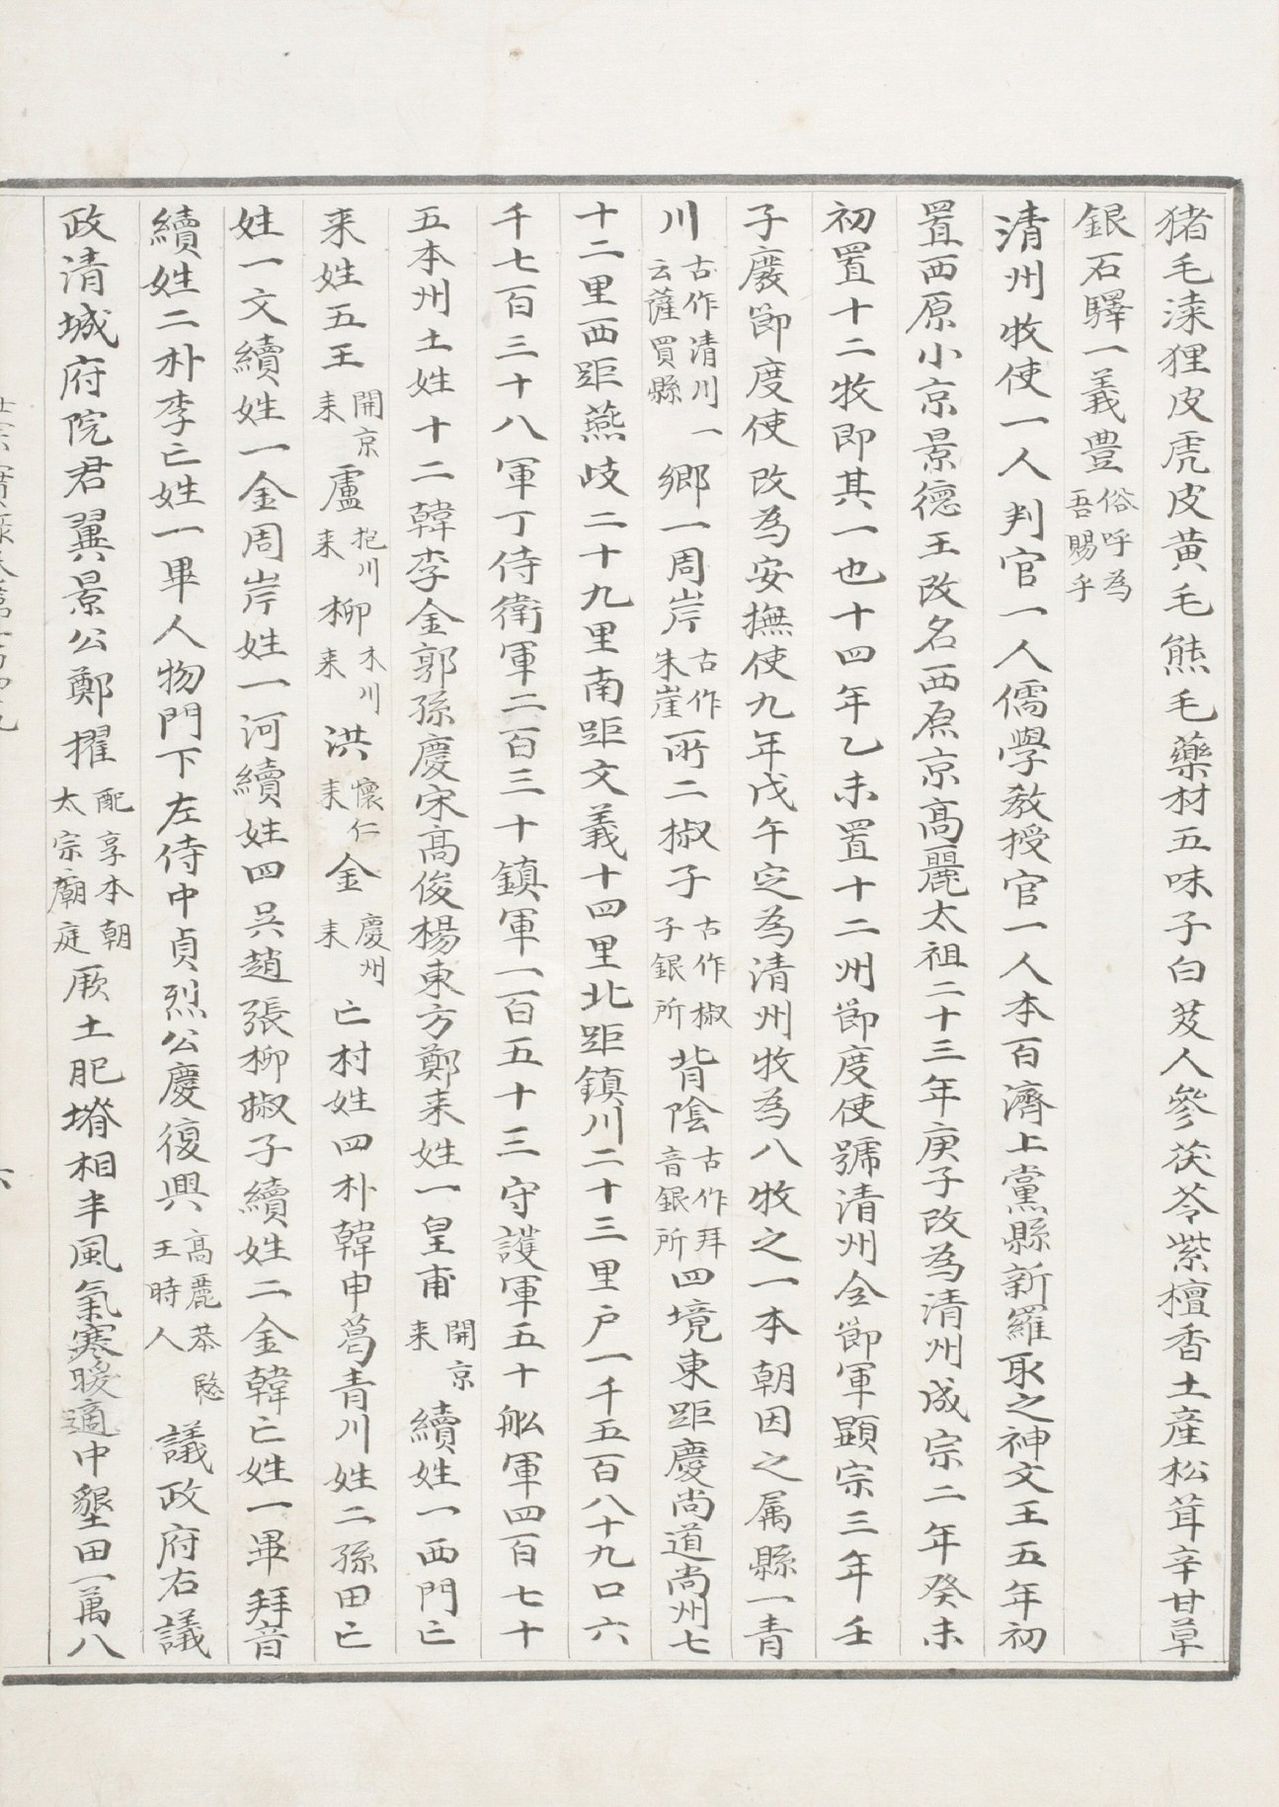 猪毛㴠狸皮虎皮黄毛熊毛藥材五味子白芨人參茯苓紫檀香土産松茸辛甘草
銀石驛一義豊俗呼為吾賜乎
清州牧使一人判官一人儒學敎授官一人本百濟上黨縣新羅取之神文王五年初
置西原小京景德王改名西原京高麗太祖二十三年庚子改為清州成宗二年癸未
初置十二牧即其一也十四年乙未置十二州節度使號清州全節軍顯宗三年壬
子廢節度使改為安撫使九年戊午定為清州牧為八牧之一本朝因之属縣一青
川古作清川一云薩買縣鄉一周岸古作朱崖所二椒子古作椒子銀所背陰古作拜音銀所四境東距慶尚道尚州七
十二里西距燕歧二十九里南距文義十四里北距鎮川二十三里户一千五百八十九口六
千七百三十八軍丁侍衛軍二百三十鎮軍一百五十三守護軍五十舩軍四百七十
五本州土姓十二韓李金郭孫慶宋高俊楊東方鄭来姓一皇甫開京来續姓一西門亡
来姓五王開京来盧抱川来柳木川来洪懷仁来金慶州来亡村姓四朴韓申葛青川姓二孫田亡
姓一文續姓一金周岸姓一河續姓四吳趙張柳椒子續姓二金韓亡姓一畢拜音
續姓二朴李亡姓一畢人物門下左侍中貞烈公慶復興高麗恭愍王時人議政府右議
政清城府院君翼景公鄭擢配享本朝太宗廟庭厥土肥塉相半風氣寒暖適中墾田一萬八